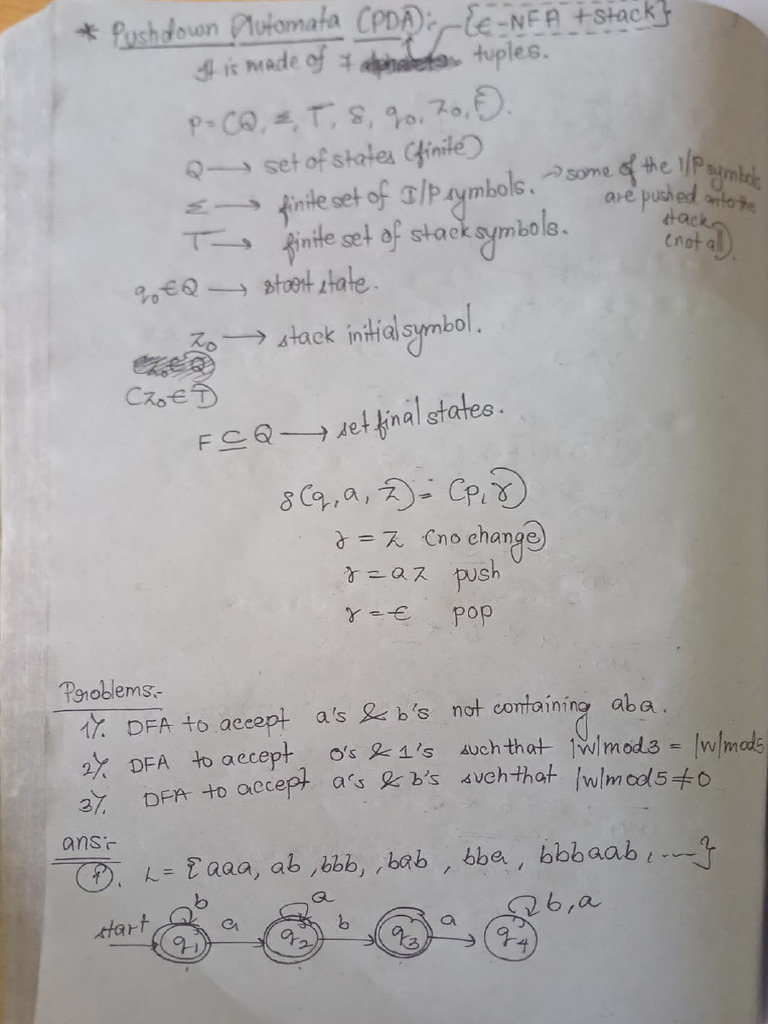 * Pushdown Automata (PDA):- {ε-NFA + stack}
It is made of 7 tuples.
P = (Q, Σ, T, δ, q0, z0, F).
Q → set of states (finite)
Σ → finite set of I/P symbols. → some of the I/P symbols are pushed onto the stack (not all).
T → finite set of stack symbols.
q0 ∈ Q → start state.
z0 → stack initial symbol.
(z0 ∈ T)
F ⊆ Q → set final states.
δ(q, a, z) = (p, γ)
γ = z (no change)
γ = az push
γ = ε pop
Problems:-
1). DFA to accept a's & b's not containing aba.
2). DFA to accept 0's & 1's such that |w|mod3 = |w|mod5
3). DFA to accept a's & b's such that |w|mod5 ≠ 0
ans:-
1). L = {aaa, ab, bbb, , bab, bba, bbbaab, ----}
b a b, a
start q1 a q2 b q3 a q4